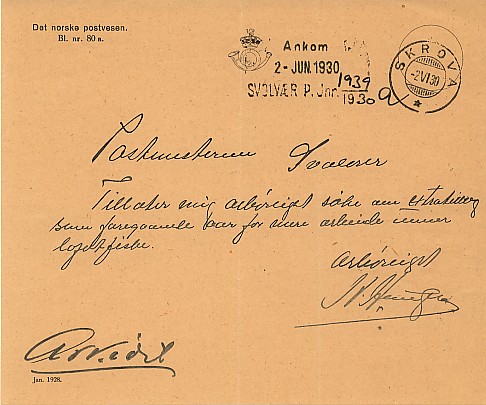 Det norske postvesen.
Bl. nr. 80 a.
Ankom
2-JUN.1930
SVOLVÆR P. Jnr. 1939/1930 a
SKROVA
-2 VI 30
Postmesteren Svolvær
Tillater mig ærbødigst søke om extratillegg
som foregaaende aar for mere arbeide under
lofotfiske.
Ærbødigst
Avvidst
Jan. 1928.